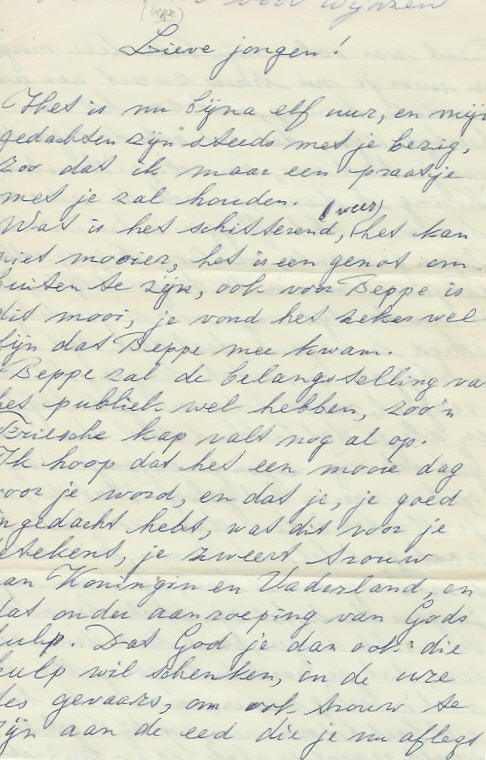 (beppe)
voor wijzen
Lieve jongen!
Het is nu bijna elf uur, en mijn
gedachten zijn steeds met je bezig,
zoo dat ik maar een praatje
met je zal houden.
(weer)
Wat is het schitterend, het kan
niet mooier, het is een genot om
buiten te zijn, ook voor Beppe is
dit mooi, je vond het zeker wel
fijn dat Beppe mee kwam.
Beppe zal de belangstelling va
het publiek wel hebben, zoo'n
Friesche kap valt nog al op.
Ik hoop dat het een mooie dag
voor je word, en dat je, je goed
ingedacht hebt, wat dit voor je
betekent, je zweert trouw
aan Koningin en Vaderland, en
dat onder aanroeping van Gods
hulp. Dat God je dan ook die
hulp wil schenken, in de ure
des gevaars, om ook trouw te
zijn aan de eed die je nu aflegt